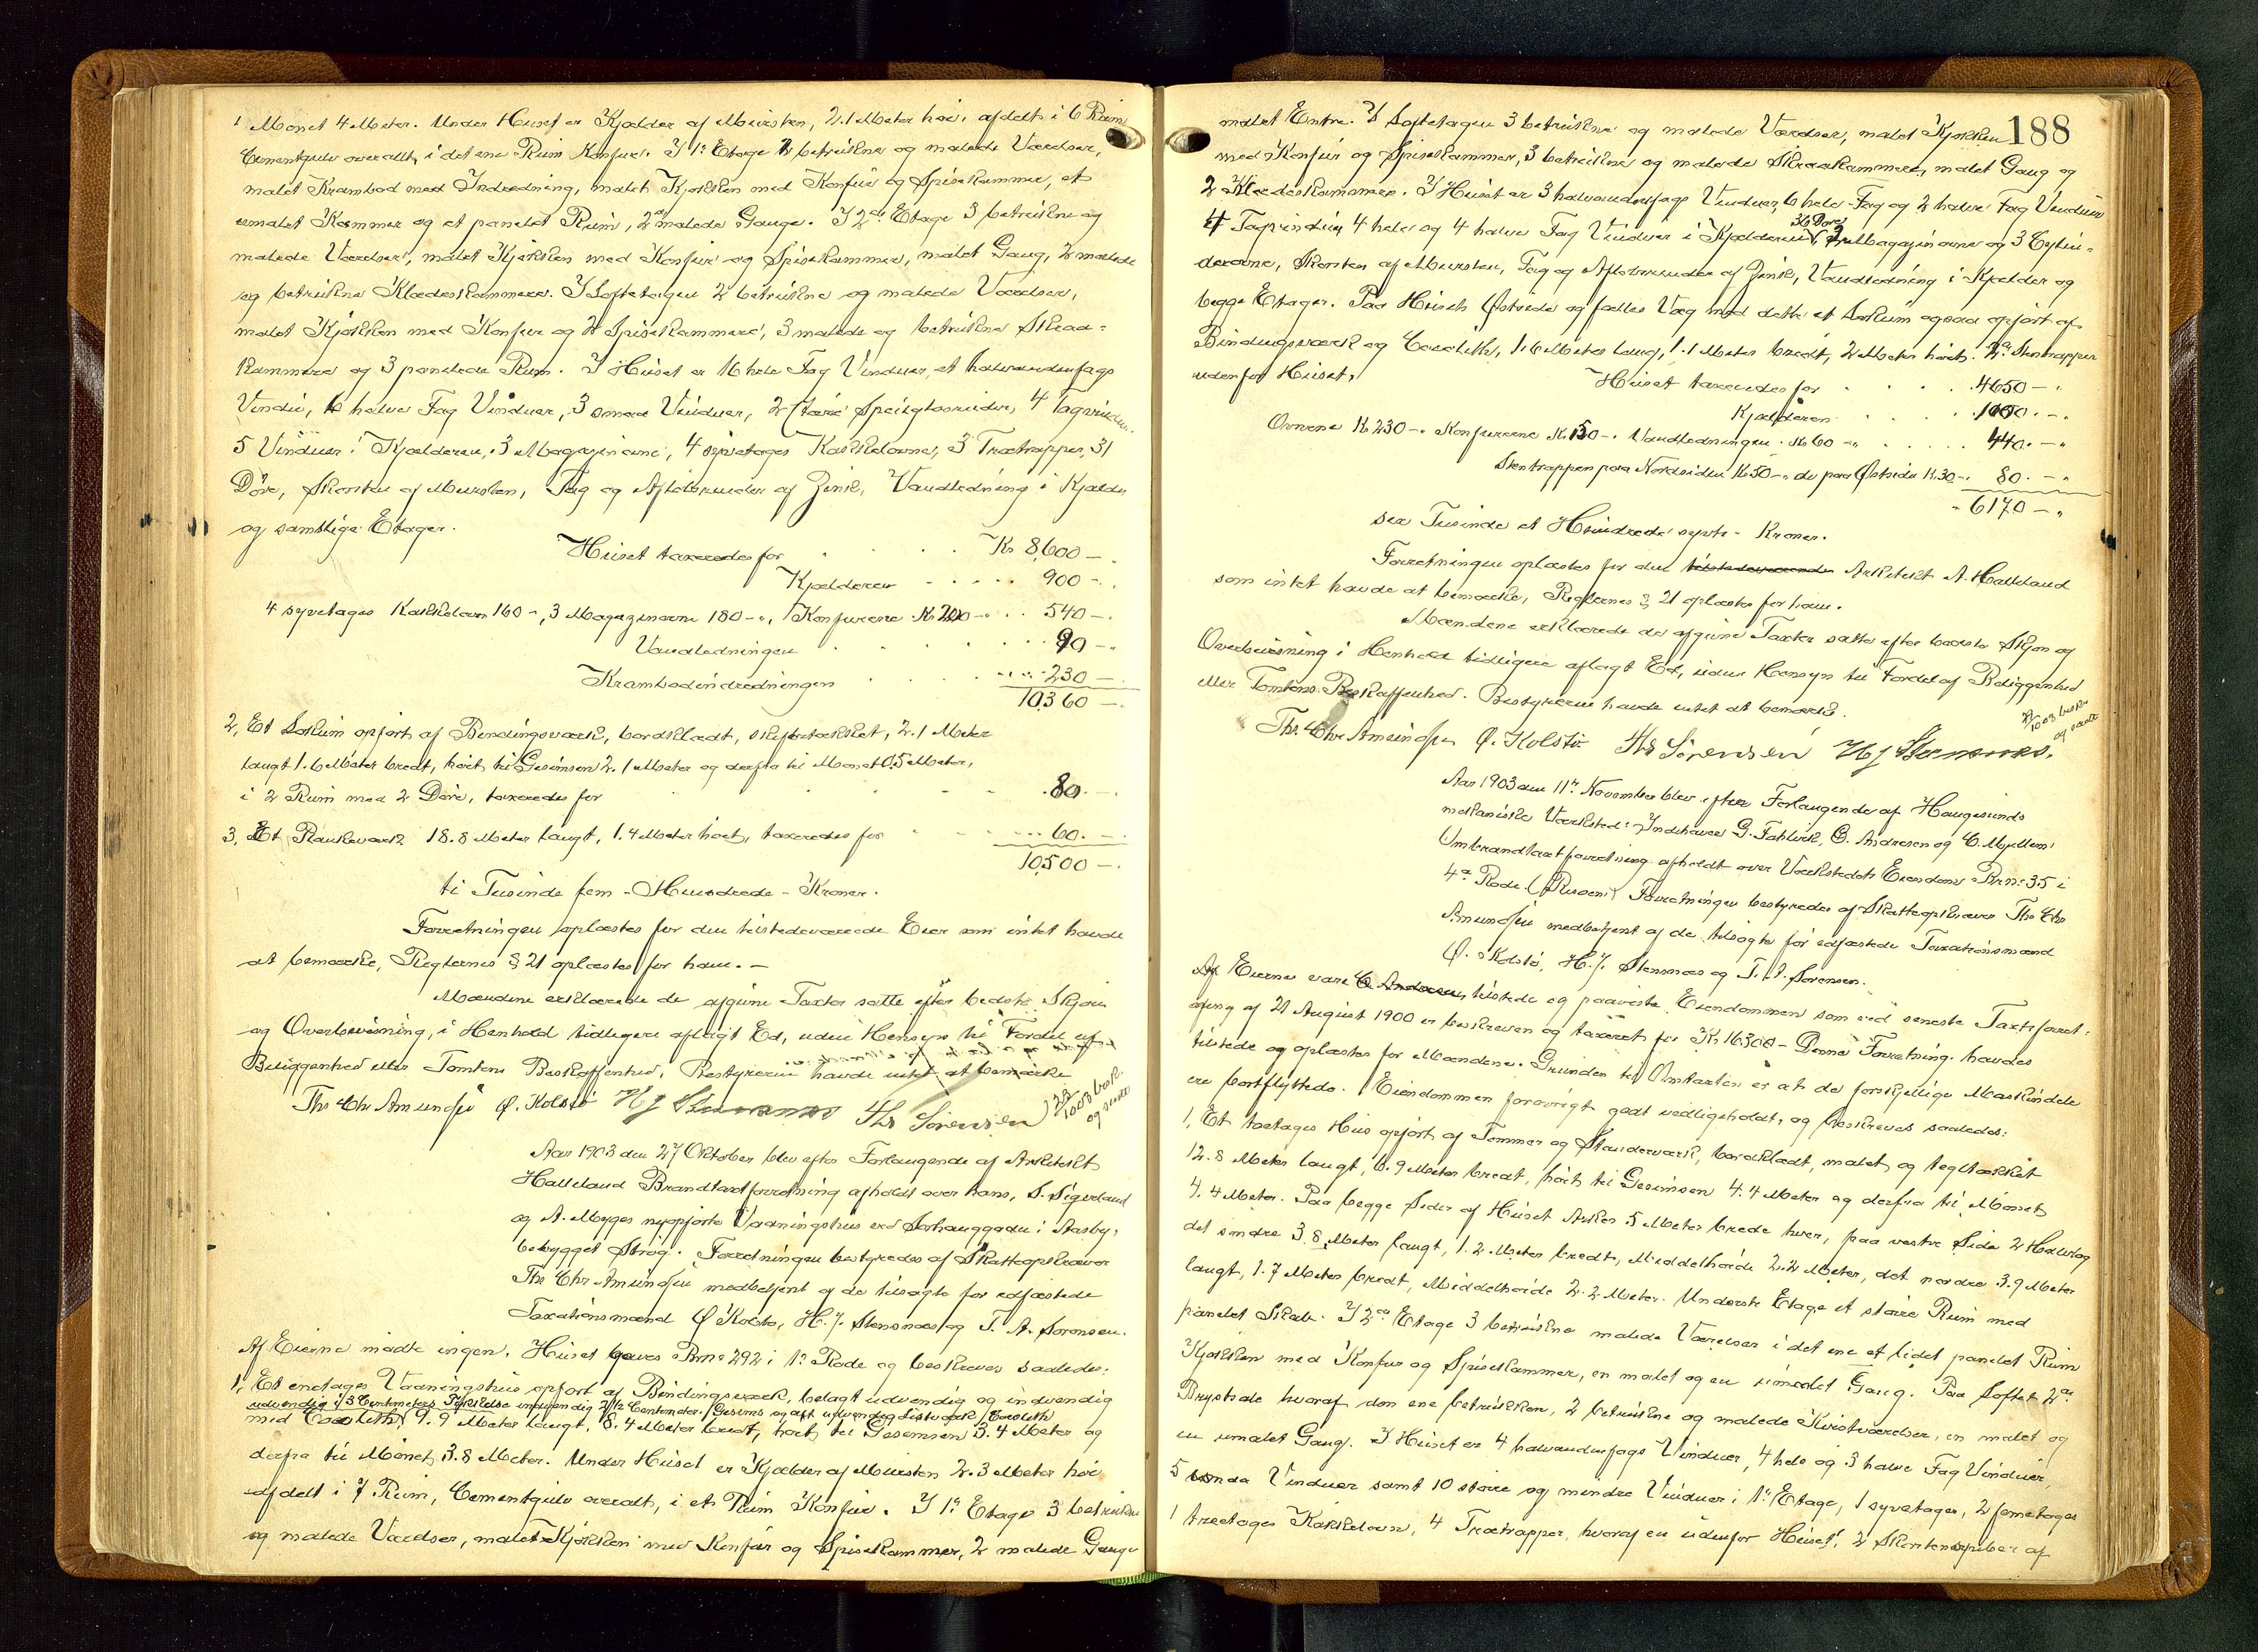 Mønet 4 Meter. Under Huset er Kjælder af Mursten, 2.1 Meter høi, afdelt i 6 Rum
Cementgulv overallt, i det ene Rum Komfur. I 1ste Etage 2 betrukne og malede Værelser,
malet Krambod med Indredning, malet Kjøkken med Komfur og Spisekammer, et
umalet Kammer og et panelet Rum, 2de malede Gange. I 2de Etage 3 betrukne og
malede Værelser, malet Kjøkken med Komfur og Spisekammer, malet Gang, 2 malede
og betrukne Klædeskammere. I Loftetagen 2 betrukne og malede Værelser,
malet Kjøkken med Komfur og Spisekammer, 3 malede og betrukne Skraa-
kammere og 3 panelede Rum. I Huset er 16 hele Fag Vinduer, et halvandenfags
Vindu, 6 halve Fag Vinduer, 3 smaa Vinduer, 2 større Speilglasruder, 4 Tagvinduer
5 Vinduer i Kjælderen, 3 Magazinovne, 4 syvetages Kakkelovne, 3 Trætrapper, 31
Døre, Skorsten af Mursten, Tag og Afløbsrender af Zink, Vandledning i Kjælder
og samtlige Etager.
Huset taxeredes for Kr 8,600 -
Kjælderen 900 -
4 syvetages Kakkelovn 160 -, 3 Magazinovne 180 -, Komfurerne Kr 200 - 540 -
Vandledningen 90 -
Krambodindredningen 230 -
10,360 -
2, Et Lokum opført af Bindingsværk, bordklædt, skifertækket, 2.1 Meter
langt 1.6 Meter bredt, høit til Gesimsen 2.1 Meter og derfra til Mønet 0.5 Meter,
i 2 Rum med 2 Døre, taxeredes for 80 -
3, Et Plankeværk 18.8 Meter langt, 1.4 Meter høit, taxeredes for 60. -
10,500 -
ti Tusinde fem - Hundrede - Kroner.
Forretningen oplæstes for den tilstedeværende Eier som intet havde
at bemærke, Reglernes § 21 oplæstes for ham. -
Mændene erklærede de afgivne Taxter satte efter bedste Skjøn
og Overbevisning, i Henhold tidligere aflagt Ed, uden Hensyn til Fordel af
Beliggenhed eller Tomtens Beskaffenhed, Bestyreren havde intet at bemærke
Ths Chr Amundsen Ø. Kolstø H J Stensnæs Ths Sørensen
1903 besk.
og sendt
Aar 1903 den 27 Oktober blev efter Forlangende af Arkitekt
Halleland Brandtaxtforretning afholdt over hans, S. Sigveland
og A. Myges nyopførte Vaaningshus ved Sørhauggaden i Aasby,
bebygget Strøg. Forretningen bestyredes af Skatteopkræver
Ths Chr Amundsen medbetjent af de tilsagte før edfæstede
Taxationsmænd Ø Kolstø, H. J. Stensnæs og T. A. Sørensen.
Af Eierne mødte ingen. Huset gaves Brno 292 i 1ste Rode og beskreves saaledes:
1, Et enetages Vaaningshus opført af Bindingsværk, belagt udvendig og indvendig
udvendig i 3 Centimeters Tykkelse indvendig 2 1/2 Centimeter. Gesims og alt udvendig Listværk
med 9.9 Meter langt, 8.4 Meter bredt, høit til Gesimsen 3.4 Meter og
derfra til Mønet 3.8 Meter. Under Huset er Kjælder af Mursten 2.3 Meter høi
afdelt i 7 Rum, Cementgulv overalt, i et Rum Komfur. I 1ste Etage 3 betrukne
og malede Værelser, malet Kjøkken med Komfur og Spisekammer, 2 malede Gange
188
malet Entre. I Loftetagen 3 betrukne og malede Værelser, malet Kjøkken
med Komfur og Spisekammer, 3 betrukne og malede Skraakammere, malet Gang og
2 Klædeskammere. I Huset er 3 halvandenfags Vinduer, 6 hele Fag og 2 halve Fag Vinduer
4 Tagvinduer, 4 hele og 4 halve Fag Vinduer i Kjælderen, 36 Døre, 2 Magazinovne og 3 Cylin-
derovne, Skorsten af Mursten, Tag og Afløbsrender af Zink, Vandledning i Kjælder og
begge Etager. Paa Husets Østside og fælles Væg med dette et Lokum ogsaa opført af
Bindingsværk og 1.6 Meter lang, 1.1 Meter bredt, 2 Meter høit. 2de Stentrapper
udenfor Huset,
Huset taxeredes for 4650 -
Kjælderen 1000. -
Ovnene Kr 230 - Komfurerne Kr 150 - Vandledningen Kr 60 - 440. -
Stentrappen paa Nordsiden Kr 50 - do paa Østside Kr 30 - 80. -
6170 -
sex Tusinde et Hundrede sytti - Kroner.
Forretningen oplæstes for den tilstedeværende Arkitekt A. Halleland
som intet havde at bemærke, Reglernes § 21 oplæstes for ham.
Mændene erklærede de afgivne Taxter satte efter bedste Skjøn og
Overbevisning i Henhold tidligere aflagt Ed, uden Hensyn til Fordel af Beliggenhed
eller Tomtens Beskaffenhed. Bestyreren havde intet at bemærke.
1903 besk
og sendt
Ths. Chr Amundsen Ø. Kolstø Ths Sørensen H J Stensnæs.
Aar 1903 den 11te November blev efter Forlangende af Haugesunds
mekaniske Værksteds Indehaver G. Fahlvik, C. Andresen og C. Myllem
Ombrandtaxtforretning afholdt over Værkstedets Eiendom Brno 35 i
4de Rode (Risøen). Forretningen bestyredes af Skatteopkræver Ths Chr
Amundsen medbetjent af de tilsagte før edfæstede Taxationsmænd
Ø. Kolstø, H. J. Stensnæs og T. A. Sørensen.
Af Eierne vare C Andresen tilstede og paaviste Eiendommen som ved seneste Taxtforret-
ning af 21 August 1900 er beskreven og taxeret for Kr 16300 - Denne Forretning havdes
tilstede og oplæstes for Mændene. Grunden til Omtaxten er at de forskjellige Maskindele
ere bortflyttede. Eiendommen forøvrigt godt vedligeholdt, og beskreves saaledes:
1, Et toetages Hus opført af Tømmer og Standerværk, bordklædt, malet og tegltækket
12.8 Meter langt, 6.9 Meter bredt, høit til Gesimsen 4.4 Meter og derfra til Mønet
4.4 Meter. Paa begge Sider af Huset Arker 5 Meter brede hver, paa vestre Side 2 Halvtag
det søndre 3.8 Meter langt, 1.2 Meter bredt, Middelhøide 2.2 Meter, det nordre 3.9 Meter
langt, 1.7 Meter bredt, Middelhøide 2.2 Meter. Underste Etage et større Rum med
panelet I 2de Etage 3 betrukne malede Værelser i det ene et lidet panelet Rum
Kjøkken med Komfur og Spisekammer, en malet og en umalet Gang. Paa Loftet 2de
hvoraf den ene betrukken, 2 betrukne og malede Kvistværelser, en malet og
en umalet Gang. I Huset er 4 halvandenfags Vinduer, 4 hele og 3 halve Fag Vinduer,
5 smaa Vinduer samt 10 større og mindre Vinduer i 1ste Etage, 1 syvetages, 2 femetages
1 treetages Kakkelovn, 4 Trætrapper, hvoraf en udenfor Huset, 2 Skorstenspiber af